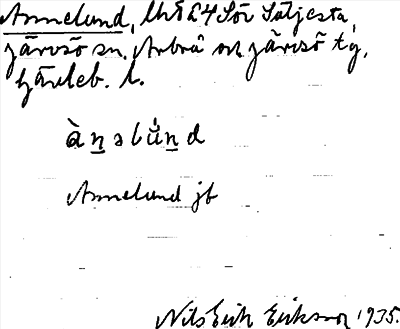 Annelund, lht å 4 Sör Säljesta,
Järvsö sn. Arbrå och Järvsö tg.
Gävleb. l.
ànəlúnd
Annelund jb
Nils Erik Eriksson 1935.